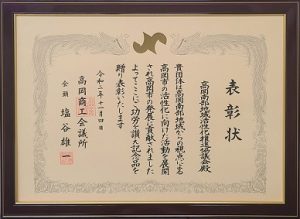 表彰状
高岡南部地域活性化推進協議会殿
貴団体は高岡南部地域からの視点による
高岡市の活性化に向けた活動を展開
され高岡市の発展に貢献されました
よってここに功労を讃え記念品を
贈り表彰いたします
令和二年十一月四日
高岡商工会議所
会頭 塩谷雄一